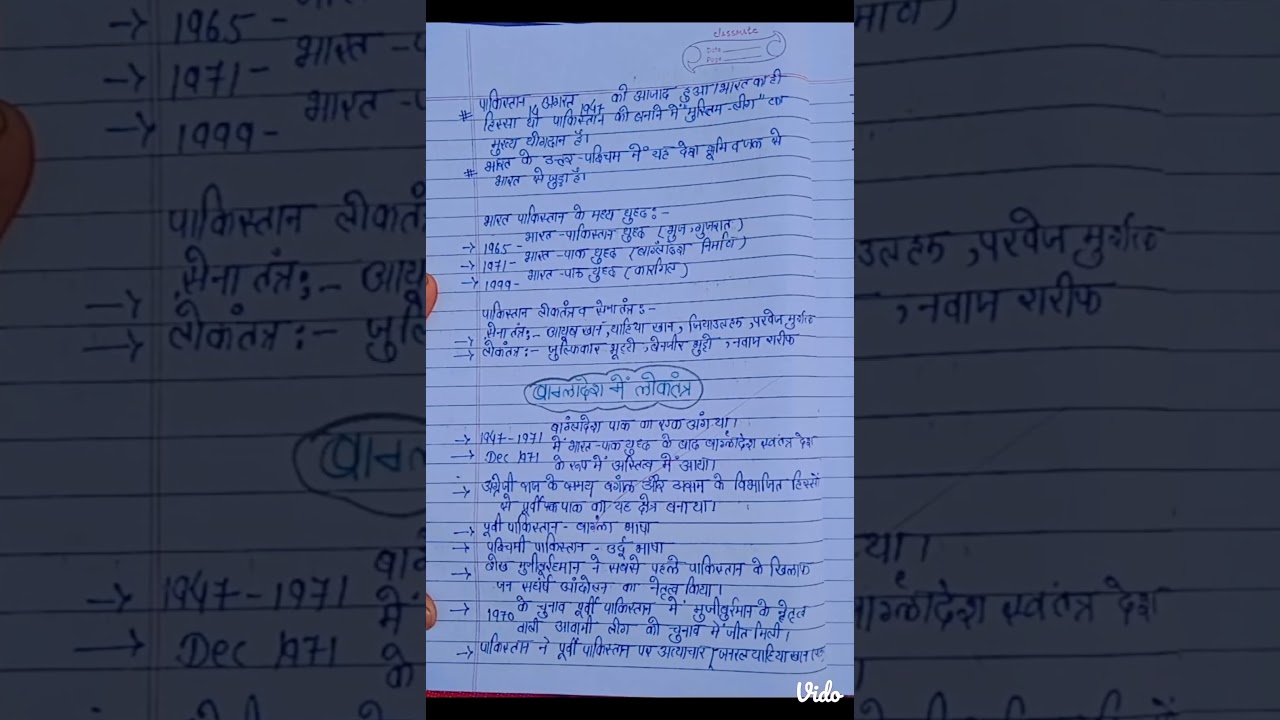 classmate
Date
Page
# पाकिस्तान 14 अगस्त 1947 को आजाद हुआ। भारत का ही
हिस्सा था पाकिस्तान को बनाने में "मुस्लिम-लीग" का
मुख्य योगदान है।
# भारत के उत्तर-पश्चिम में यह देश भूमि व जल से
भारत से जुड़ा है।
भारत पाकिस्तान के मध्य युध्द :-
→ 1965 - भारत-पाकिस्तान युध्द (भुज, गुजरात)
→ 1971 - भारत-पाक युध्द (बांग्लादेश निर्माण)
→ 1999 - भारत-पाक युध्द (कारगिल)
पाकिस्तान लोकतंत्र व सेना तंत्र :-
→ सेना तंत्र :- आयुब खान, याहिया खान, जियाउलहक, परवेज मुर्शरफ
→ लोकतंत्र :- जुल्फिकार भूट्टो, बेनजीर भुट्टो, नवाज शरीफ
बांग्लादेश में लोकतंत्र
→ 1947-1971 बांग्लादेश पाक का एक अंग था।
→ Dec 1971 में भारत-पाक युध्द के बाद बांग्लादेश स्वतंत्र देश
के रूप में अस्तित्व में आया।
→ अंग्रेजी राज के समय बंगाल और असम के विभाजित हिस्सों
से पूर्वी पाक का यह क्षेत्र बना था।
→ पूर्वी पाकिस्तान - बांग्ला भाषा
→ पश्चिमी पाकिस्तान - उर्दू भाषा
→ शेख मुजीबुर्रहमान ने सबसे पहले पाकिस्तान के खिलाफ
जन संघर्ष आंदोलन का नेतृत्व किया।
→ 1970 के चुनाव पूर्वी पाकिस्तान में मुजीबुर्रमान के नेतृत्व
वाली आवामी लीग को चुनाव में जीत मिली।
→ पाकिस्तान ने पूर्वी पाकिस्तान पर अत्याचार (जनरल याहिया खान
Vido